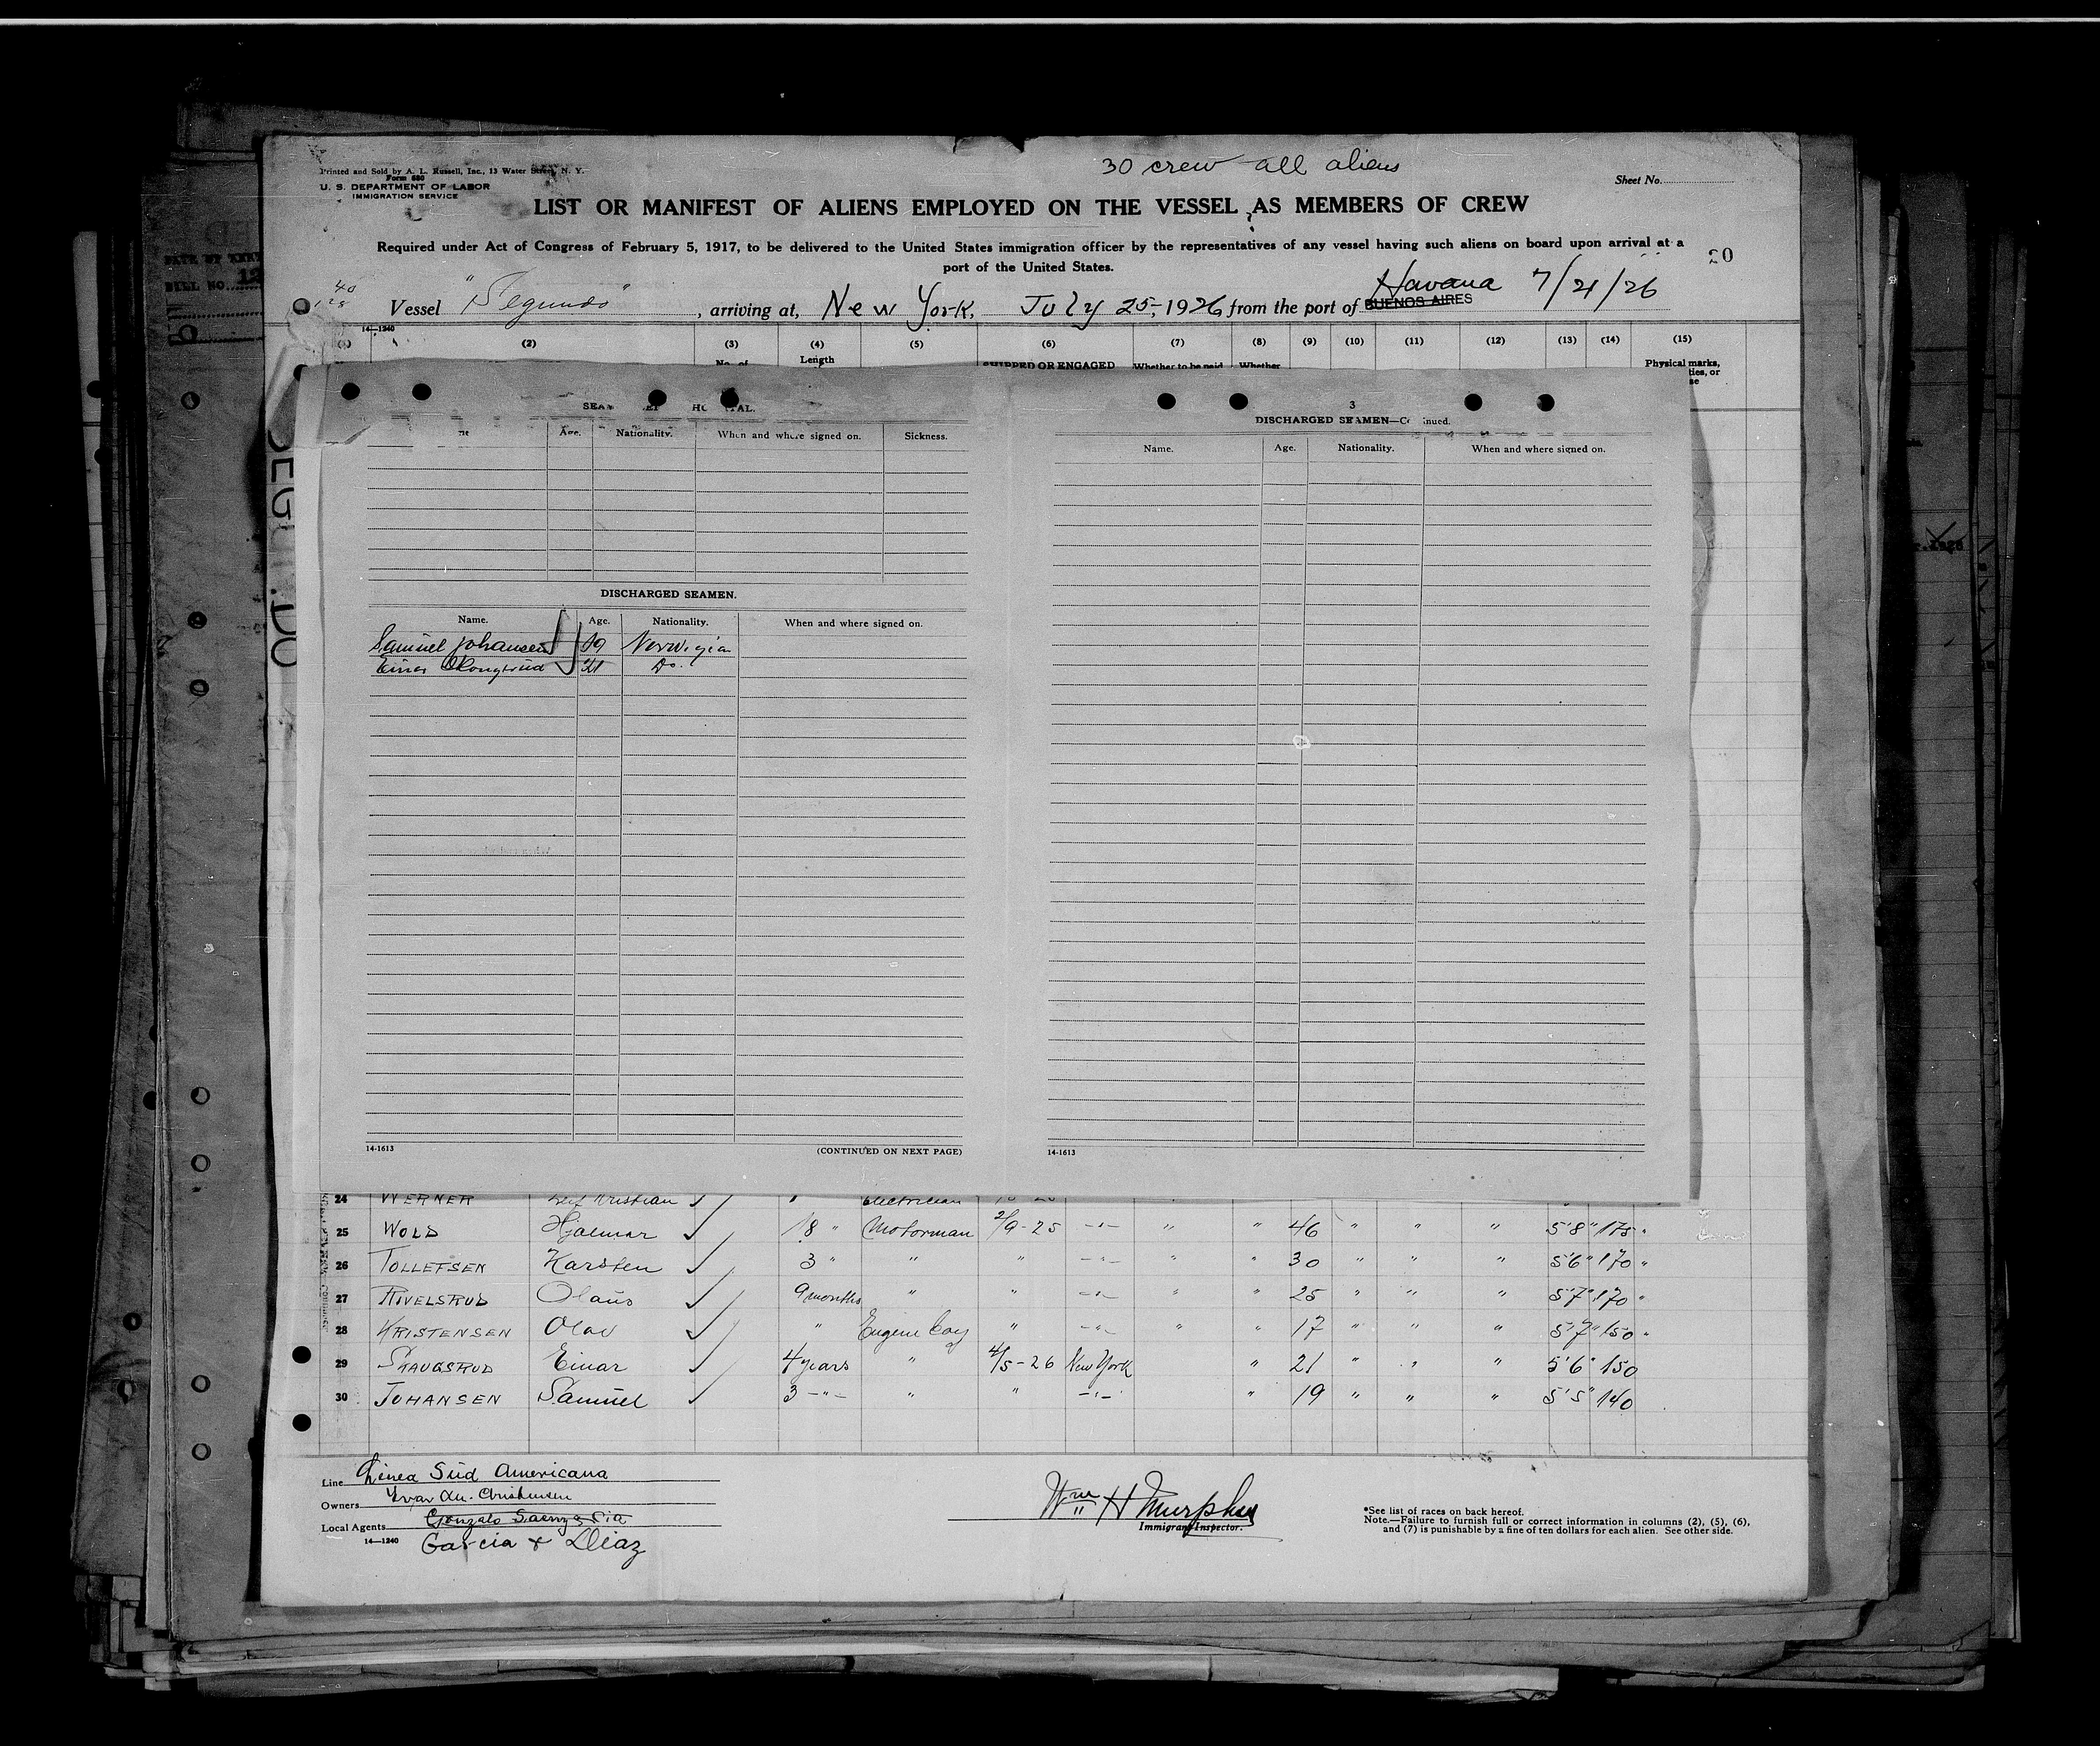 30 crew all aliens
Printed and Sold by A. L. Russell, Inc., 13 Water Street, N. Y.
Form 680
U. S. DEPARTMENT OF LABOR
IMMIGRATION SERVICE
Sheet No.
LIST OR MANIFEST OF ALIENS EMPLOYED ON THE VESSEL AS MEMBERS OF CREW
Required under Act of Congress of February 5, 1917, to be delivered to the United States immigration officer by the representatives of any vessel having such aliens on board upon arrival at a
port of the United States.
20
Vessel "Segundo", arriving at, New York, July 25, 1926 from the port of BUENOS AIRES Havana 7/21/26
14—1240
(2) (3) (4) (5) (6) (7) (8) (9) (10) (11) (12) (13) (14) (15)
No. of Length SHIPPED OR ENGAGED Whether to be paid Whether Physical marks,
3
DISCHARGED SEAMEN—Continued.
Age. Nationality. When and where signed on. Sickness.
Name. Age. Nationality. When and where signed on.
DISCHARGED SEAMEN.
Name. Age. Nationality. When and where signed on.
Samuel Johansen 19 Norwigian
Einar 21 Do.
14-1613 (CONTINUED ON NEXT PAGE)
14-1613
24 WERNER Kristian Electrician
25 WOLD Hjalmar 18 " Motorman 2/9-25 -"- " " 46 " " " 5'8" 175 "
26 TOLLEFSEN Karsten 3 " " " -"- " " 30 " " " 5'6" 170 "
27 RIVELSRUD Olaus 9 months " " -"- " " 25 " " " 5'7" 170 "
28 KRISTENSEN Olav " Engine boy " -"- " " 17 " " " 5'7" 150 "
29 SKAUGSRUD Einar 4 years " 4/5-26 New York " 21 " " " 5'6" 150
30 JOHANSEN Samuel 3 -"- " " -"- " 19 " " " 5'5" 140
Line Linea Sud Americana
Owners Ivar An. Christensen
Local Agents Gonzalo Saenz & Cia
14—1240 Garcia & Diaz
Wm H Murphy
Immigrant Inspector.
*See list of races on back hereof.
Note.—Failure to furnish full or correct information in columns (2), (5), (6),
and (7) is punishable by a fine of ten dollars for each alien. See other side.